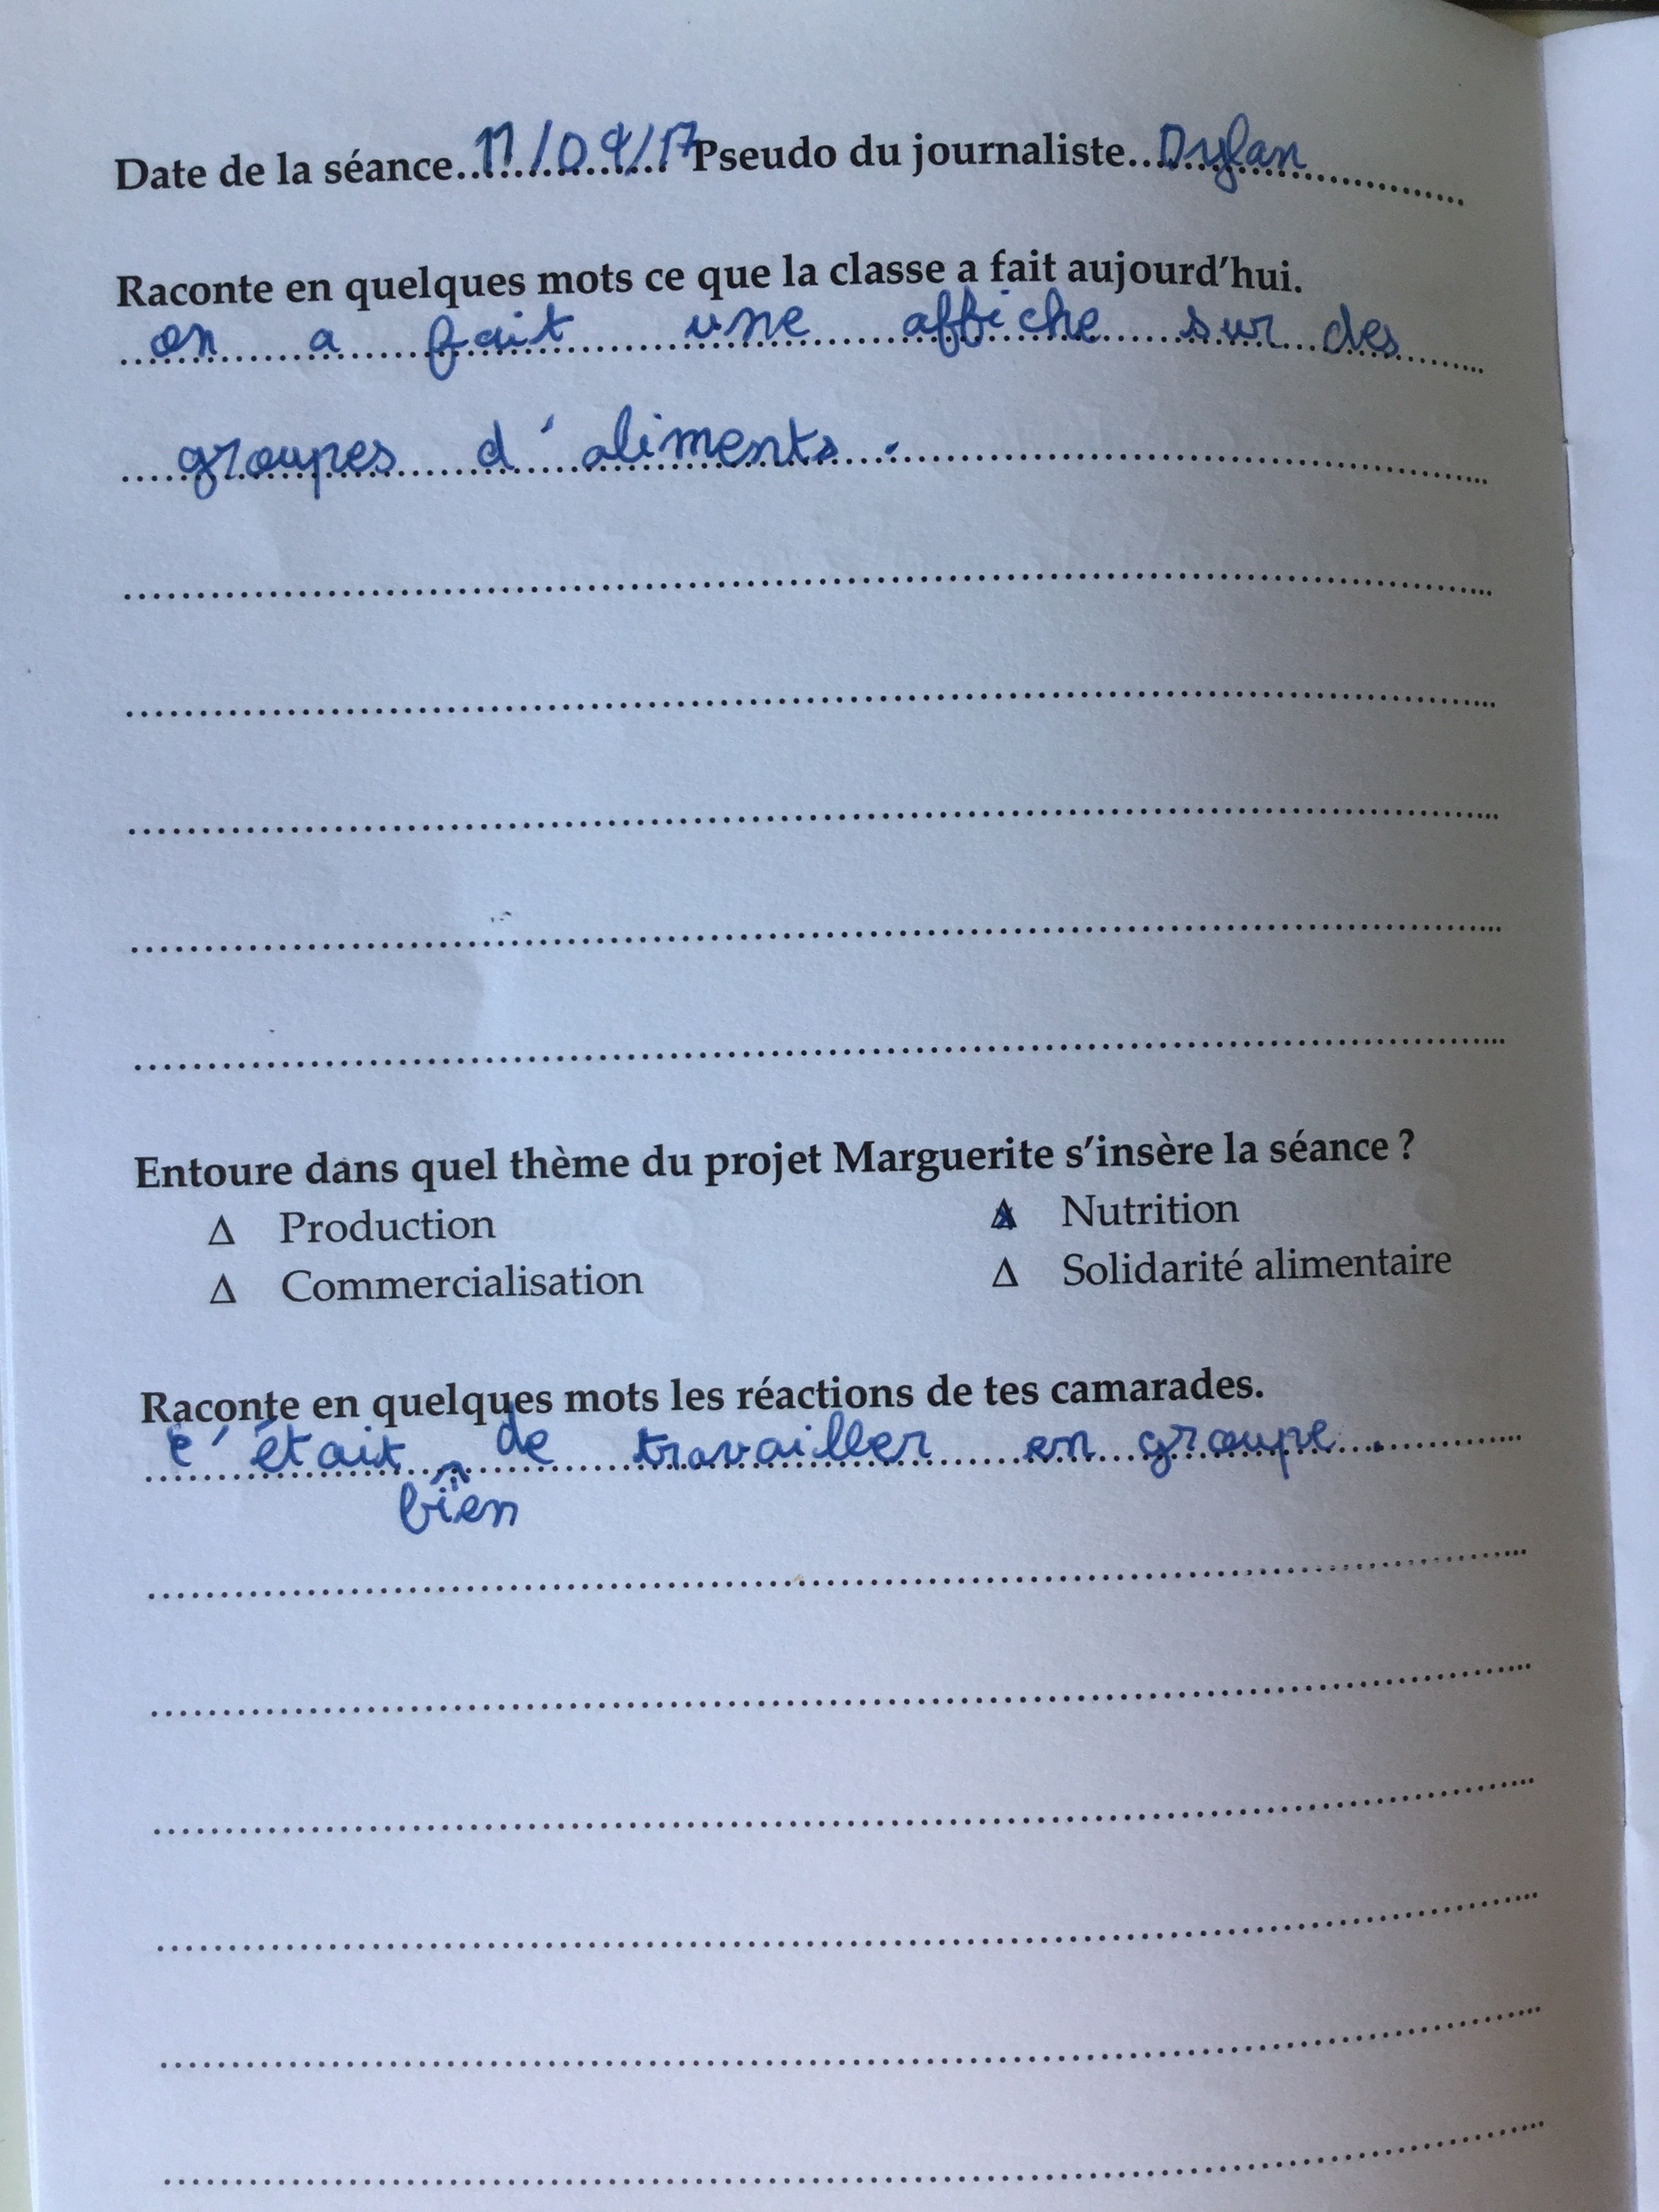 Date de la séance 11/09/17 Pseudo du journaliste Dylan
Raconte en quelques mots ce que la classe a fait aujourd'hui.
on a fait une affiche sur des
groupes d'aliments.
Entoure dans quel thème du projet Marguerite s'insère la séance ?
Δ Production Δ Nutrition
Δ Commercialisation Δ Solidarité alimentaire
Raconte en quelques mots les réactions de tes camarades.
c'était de travailler en groupe.
bien